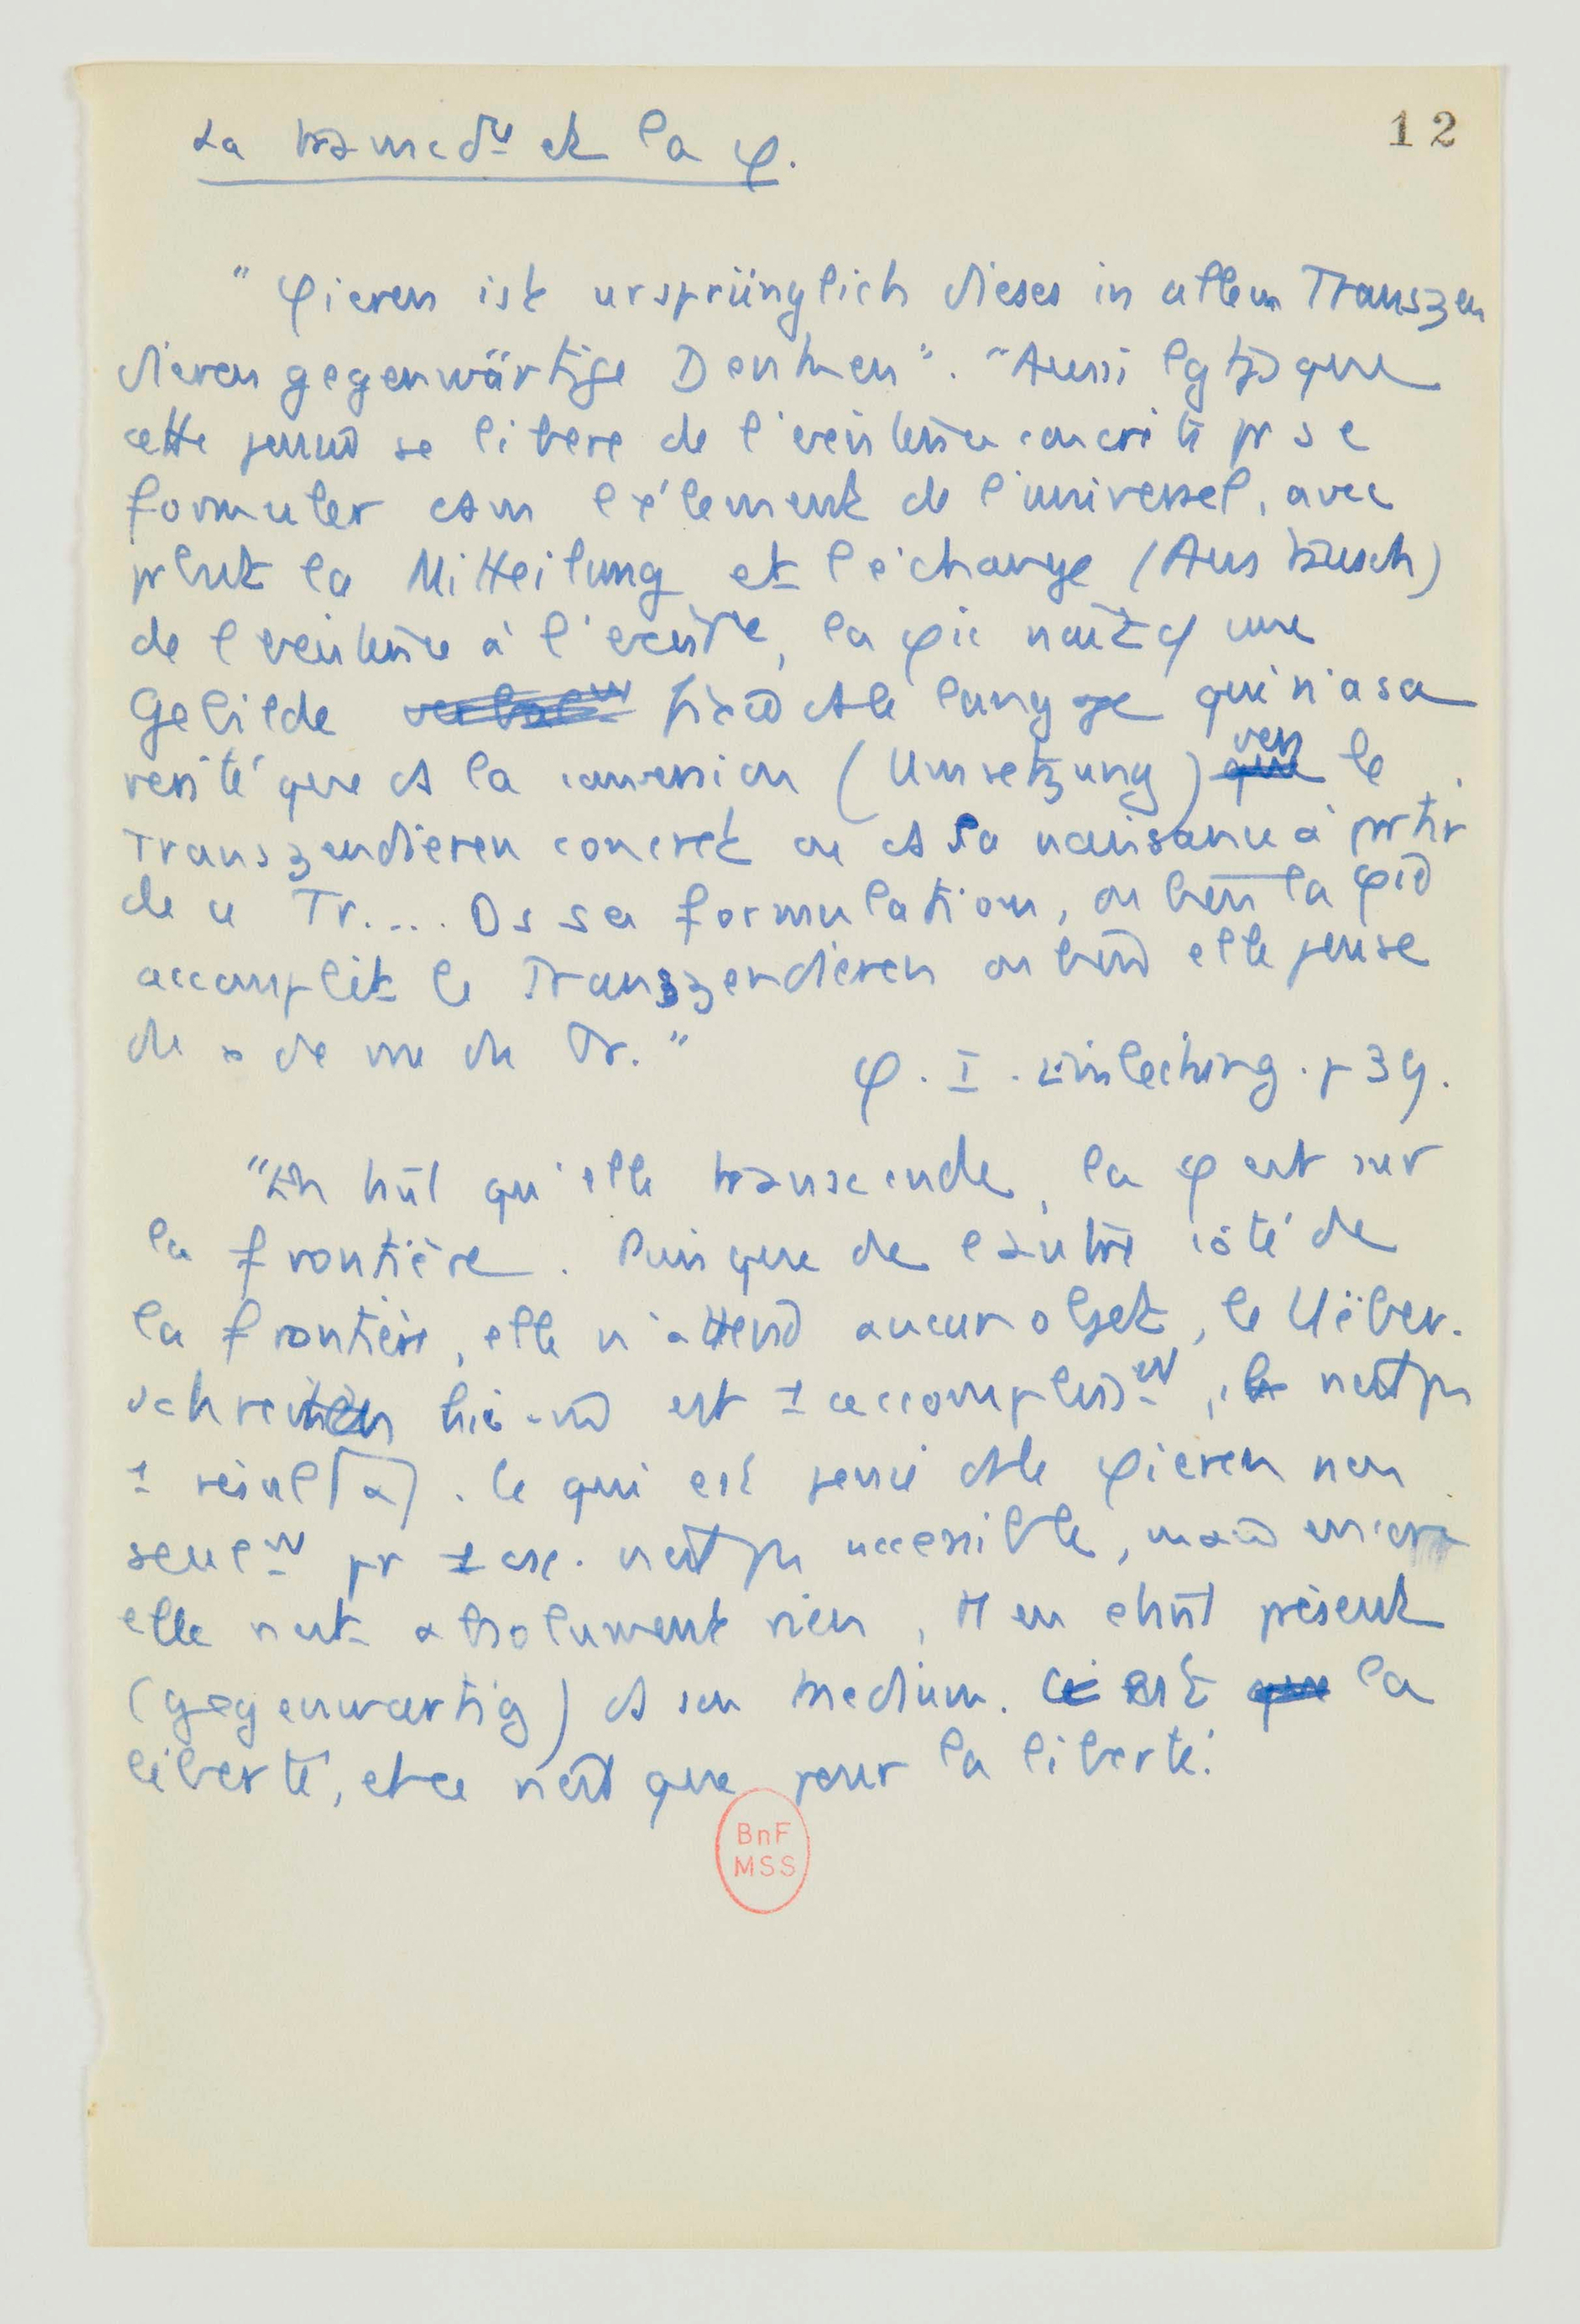 La et la φ.
12
" φieren ist ursprünglich dieses in allem Transzen
dieren gegenwärtige Denken". "Aussi lgtps que
cette pensée se libère de l'existence concrète pr se
formuler ds l'élément de l'universel, avec
la Mitteilung et l'échange (Austausch)
de l'existence à l'existence, la φie naît c/ une
Gebilde fixée ds le langage qui n'a sa
vérité que ds la conversion (Umsetzung) vers le
Transzendieren concret ou ds sa naissance à partir
de ce Tr.... Ds sa formulation, ou bien la φie
accomplit le Transzendieren ou bien elle pense
de de vue du Tr."
φ. I. Einleitung. p 39.
"En tant qu'elle transcende, la φ est sur
la frontière. Puisque de l'autre côté de
la frontière, elle n'attend aucun objet, le Ueber-
schreiten lui-même est 1 accomplisst, n'est pas
1 résultat. Ce qui est pensé ds le φieren non
seult pr 1 csc. n'est pas accessible, mais encore
elle n'est absolument rien, tt en étant présent
(gegenwartig) ds son medium. C'est la
liberté, et ce n'est que pour la liberté.
BnF
MSS